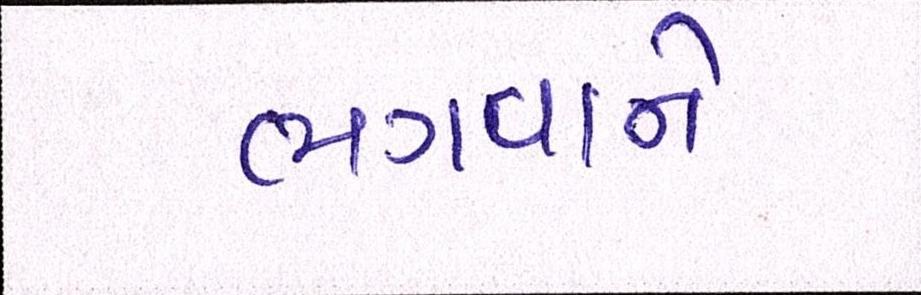 ભગવાને